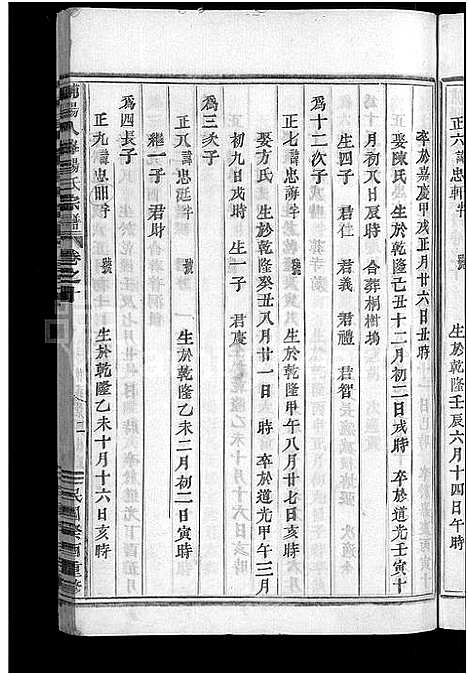 正六諱忠軒字　號　生於乾隆壬辰六月十四日午時
卒於嘉慶甲戌正月廿六日丑時
娶陳氏　生於乾隆己丑十二月初二日戌時　卒於道光壬寅十
月初八日辰時　合葬桐樹塢
生四子　君仁　君義　君禮　君智
為十二次子
正七諱忠海字　號　生於乾隆甲午八月廿七日亥時
娶方氏　生於乾隆癸丑八月廿一日　時　卒於道光甲午三月
初九日戌時　生一子　君慶
為三次子
正八諱忠廷字　號　生於乾隆乙未二月初二日寅時
繼一子　君財
為四長子
正九諱忠品字　號　生於乾隆乙未十月十六日亥時
楊氏宗譜　卷之十
民國癸酉重修